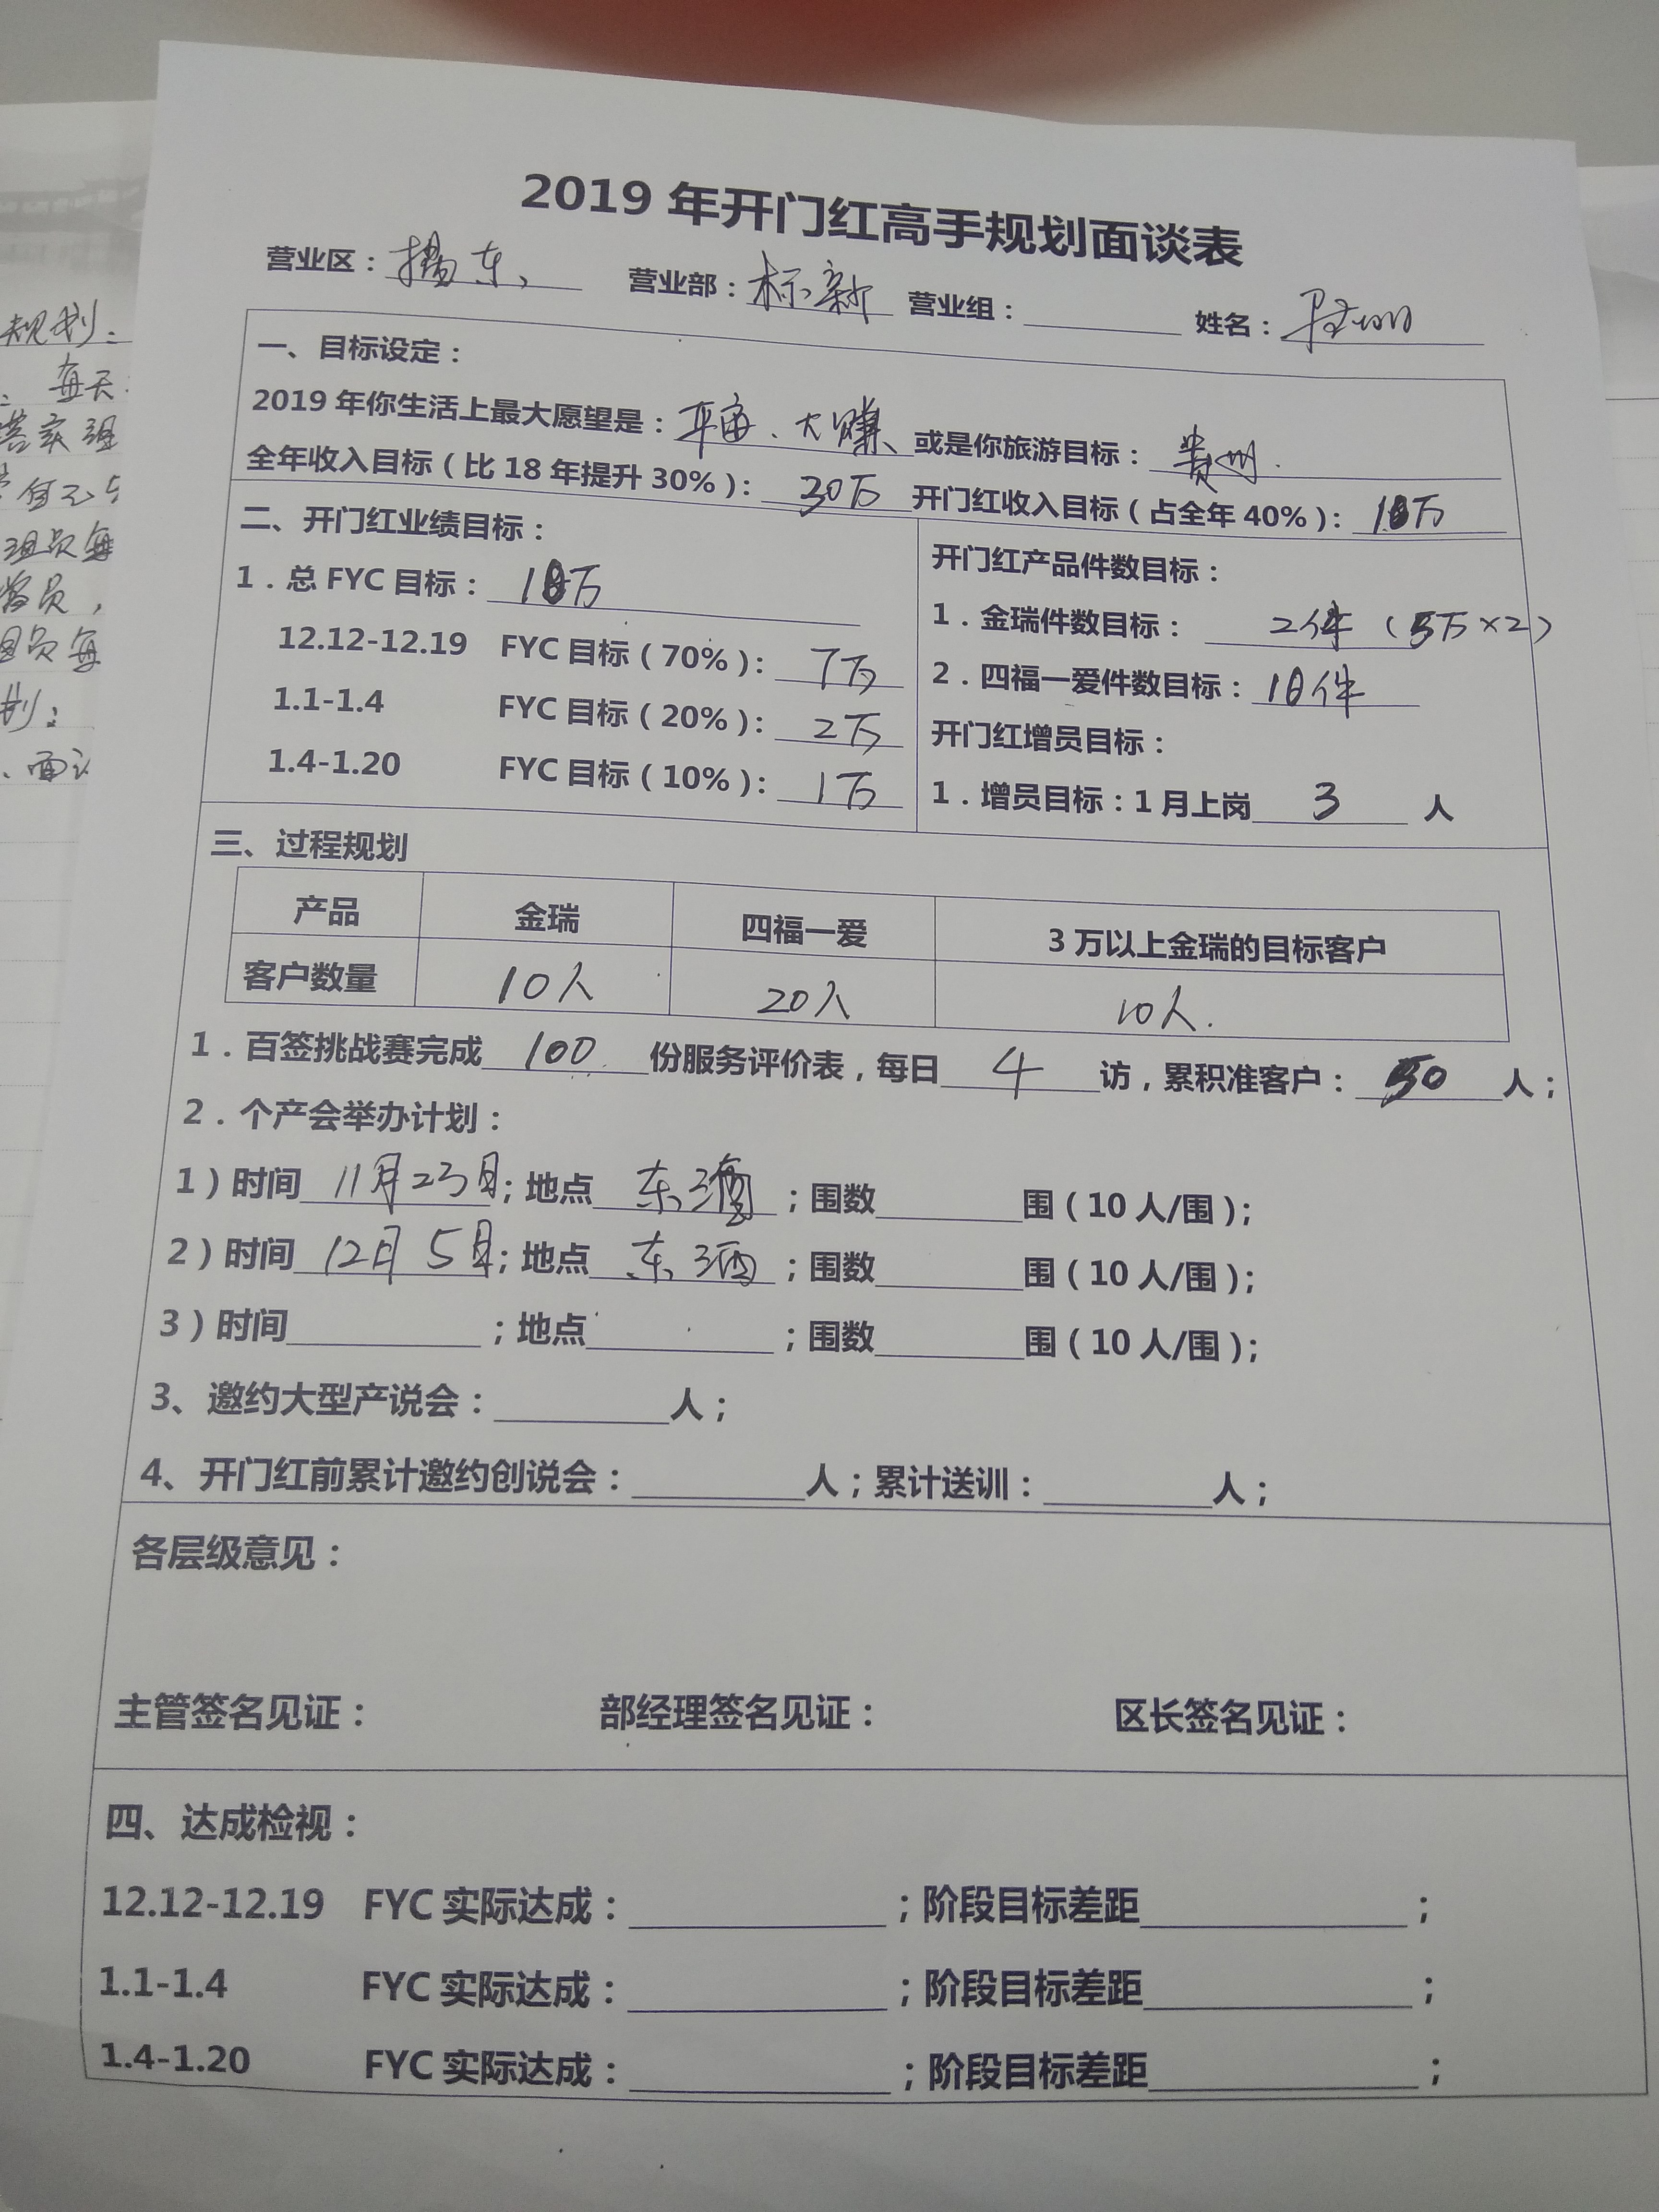 2019年开门红高手规划面谈表
营业区：揭东 营业部：标新 营业组： 姓名：
一、目标设定：
2019年你生活上最大愿望是：平安、大赚 或是你旅游目标：贵州.
全年收入目标（比18年提升30%）：30万 开门红收入目标（占全年40%）：10万
二、开门红业绩目标：
1．总FYC目标：10万
12.12-12.19 FYC目标（70%）：7万
1.1-1.4 FYC目标（20%）：2万
1.4-1.20 FYC目标（10%）：1万
开门红产品件数目标：
1．金瑞件数目标： 2件（5万×2）
2．四福一爱件数目标：10件
开门红增员目标：
1．增员目标：1月上岗 3 人
三、过程规划
产品 金瑞 四福一爱 3万以上金瑞的目标客户
客户数量 10人 20人 10人.
1．百签挑战赛完成 100 份服务评价表，每日 4 访，累积准客户： 50 人；
2．个产会举办计划：
1）时间 11月23日；地点 东酒 ；围数 围（10人/围）；
2）时间 12月5日；地点 东酒 ；围数 围（10人/围）；
3）时间 ；地点 ；围数 围（10人/围）；
3、邀约大型产说会： 人；
4、开门红前累计邀约创说会： 人；累计送训： 人；
各层级意见：
主管签名见证： 部经理签名见证： 区长签名见证：
四、达成检视：
12.12-12.19 FYC实际达成： ；阶段目标差距 ；
1.1-1.4 FYC实际达成： ；阶段目标差距 ；
1.4-1.20 FYC实际达成： ；阶段目标差距 ；
规划：
每天